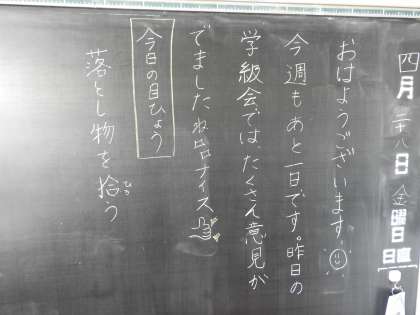 四月二十八日金曜日
日直
おはようございます。
今週もあと一日です。昨日の
学級会では、たくさん意見が
でましたね。ナイス
今日の目ひょう
落とし物を拾う
ひろ